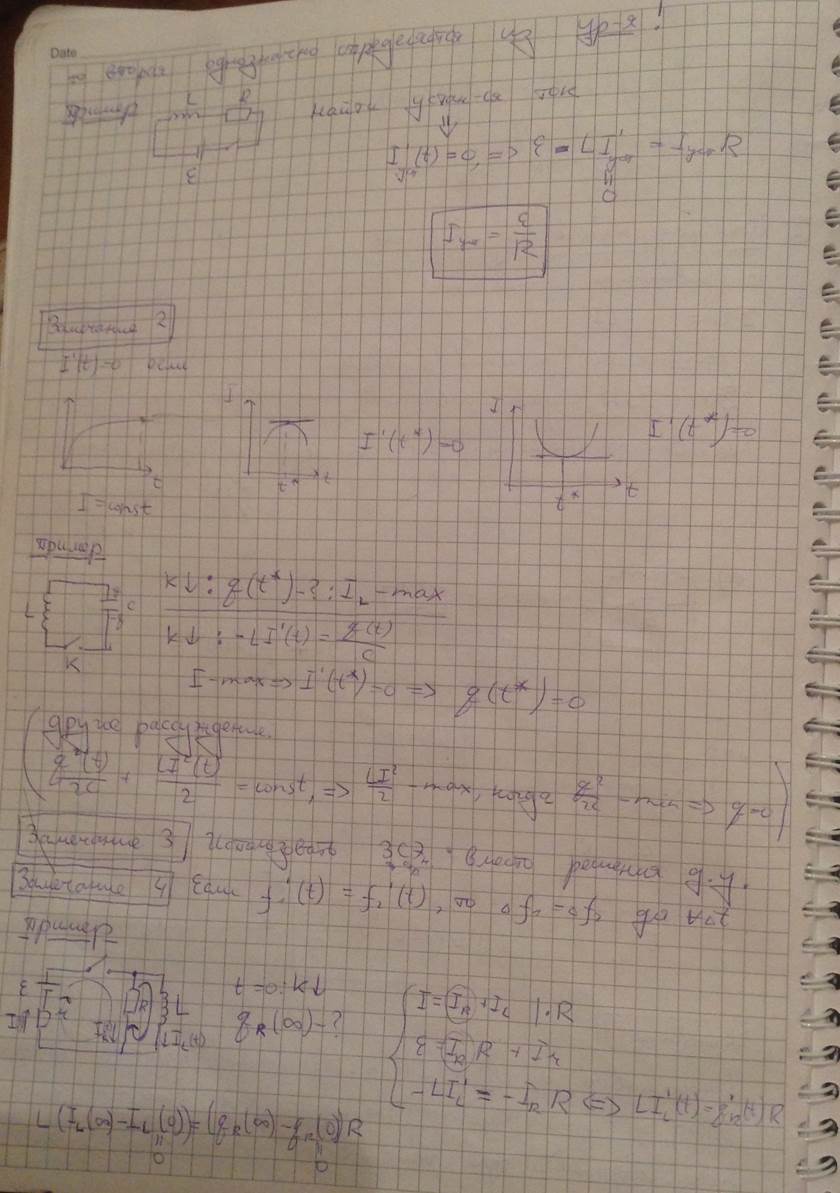 Date
⇒ вторая однозначно определяется из ур-я!
Пример L R Найти устан-ся ток
ε
I'уст(t)=0, => ε - LI'уст = Iуст R
0
Iус = ε/R
Замечание 2
I'(t)=0 если
I I
I'(t*)=0 I'(t*)=0
t t* t t* t
I=const
Пример
L C K
K↓: q(t*)-?: I_L - max
K↓: -LI'(t) = q(t)/C
I-max => I'(t*)=0 => q(t*)=0
(другие рассуждение.
q²(t)/2C + LI²(t)/2 = const, => LI²/2 - max, когда q²/2C - min => q=0)
Замечание 3 Использовать ЗСЭ вместо решения д.у.
Замечание 4 Если f₁'(t) = f₂'(t), то Δf₁=Δf₂ до ∀Δt
Пример
ε I r I_R R L I_L(t)
t=0: K↓
q_R(∞)-?
I = I_R + I_L |·R
ε = I_R R + Ir
-LI_L' = -I_R R <=> LI_L'(t) = q_R'(t)R
L(I_L(∞)-I_L(0))=(q_R(∞)-q_R(0))R
0 0